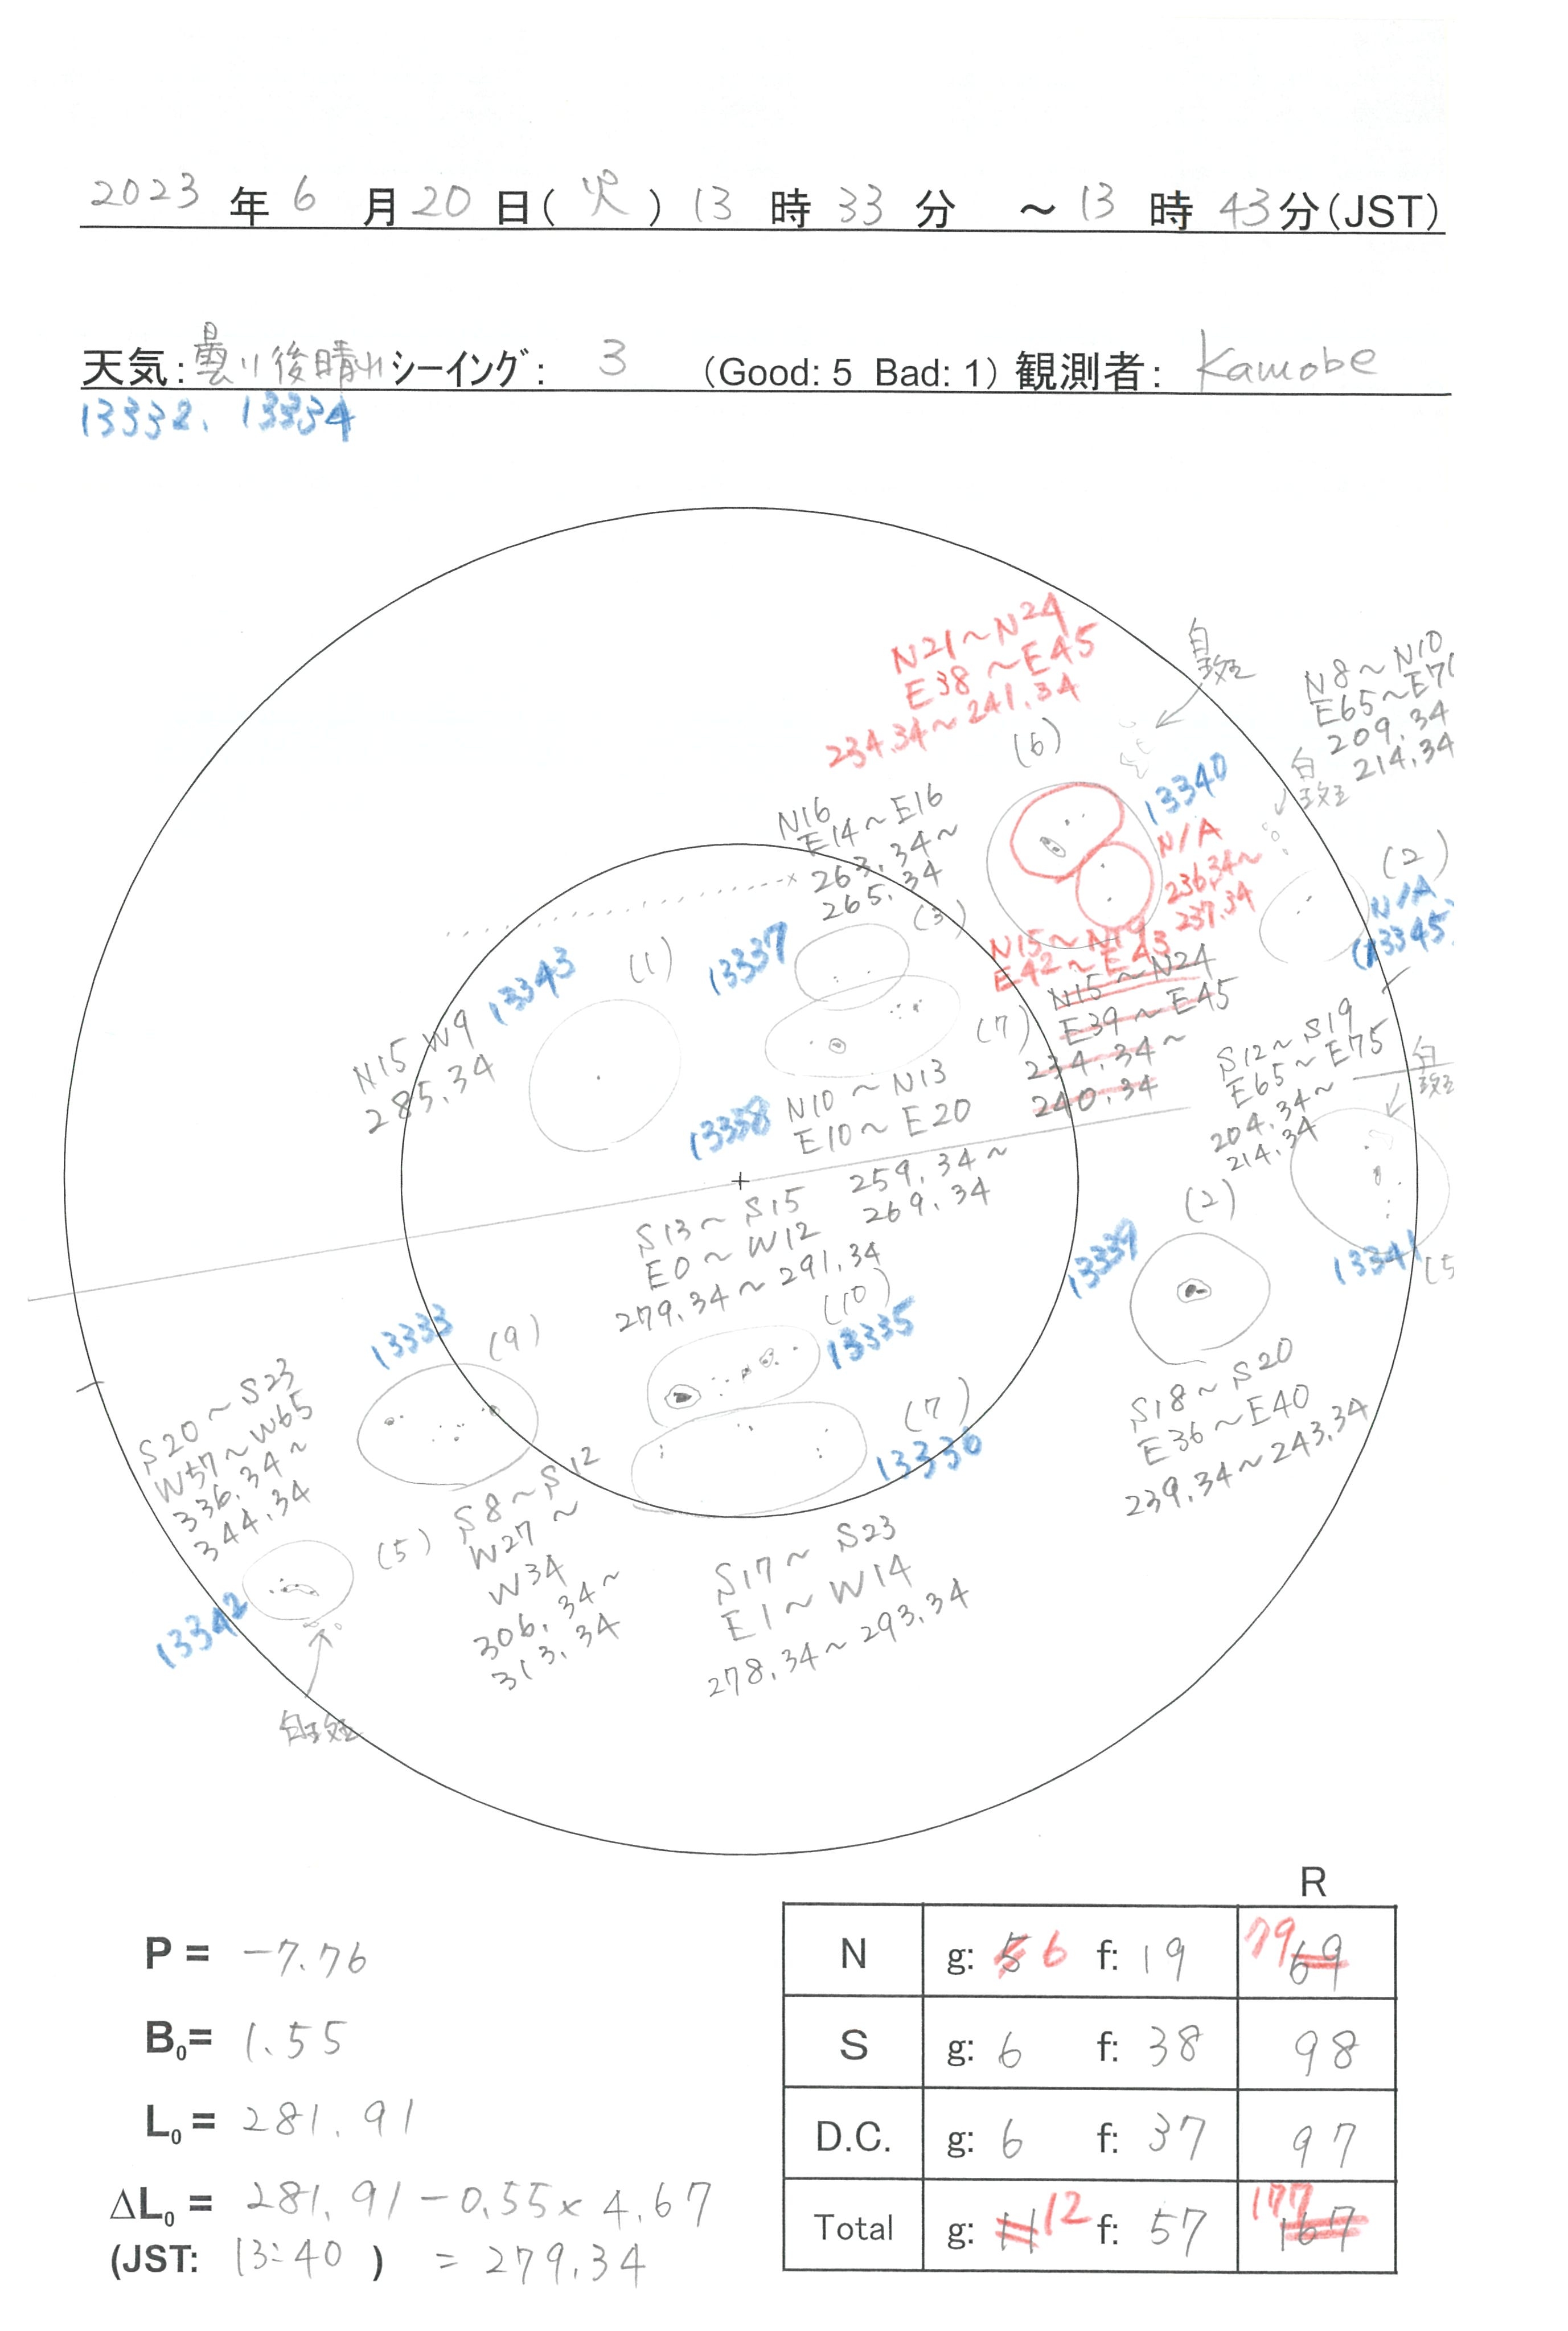 2023 年 6 月 20 日( 火 ) 13 時 33 分 ～ 13 時 43 分(JST)
天気: 曇り後晴れ シーイング: 3 (Good: 5 Bad: 1) 観測者: Kamobe
13332. 13334
N21～N24
E38～E45
234.34～241.34
(6)
白斑
N8～N10
E65～E71
209.34
214.34
白斑
13340
N/A
236.34～
237.34
N15～N19
E42～E43
N15～N24
E39～E45
234.34～
240.34
(2)
N/A
(13345
N16
E14～E16
263.34～
265.34
(3)
13337
13343
(1)
N15 W9
285.34
(7)
13338
N10～N13
E10～E20
259.34～
269.34
S12～S19
E65～E75
204.34～
214.34
白斑
13341
(5
(2)
13339
S18～S20
E36～E40
239.34～243.34
S13～S15
E0～W12
279.34～291.34
(10)
13335
13333
(9)
S8～S12
W27～
W34
306.34～
313.34
S20～S23
W57～W65
336.34～
344.34
(5)
13342
白斑
(7)
13336
S17～S23
E1～W14
278.34～293.34
P = -7.76
B0= 1.55
L0 = 281.91
ΔL0 = 281.91-0.55×4.67
(JST: 13:40 ) = 279.34
R
N g: 5 6 f: 19 79 69
S g: 6 f: 38 98
D.C. g: 6 f: 37 97
Total g: 11 12 f: 57 177 167